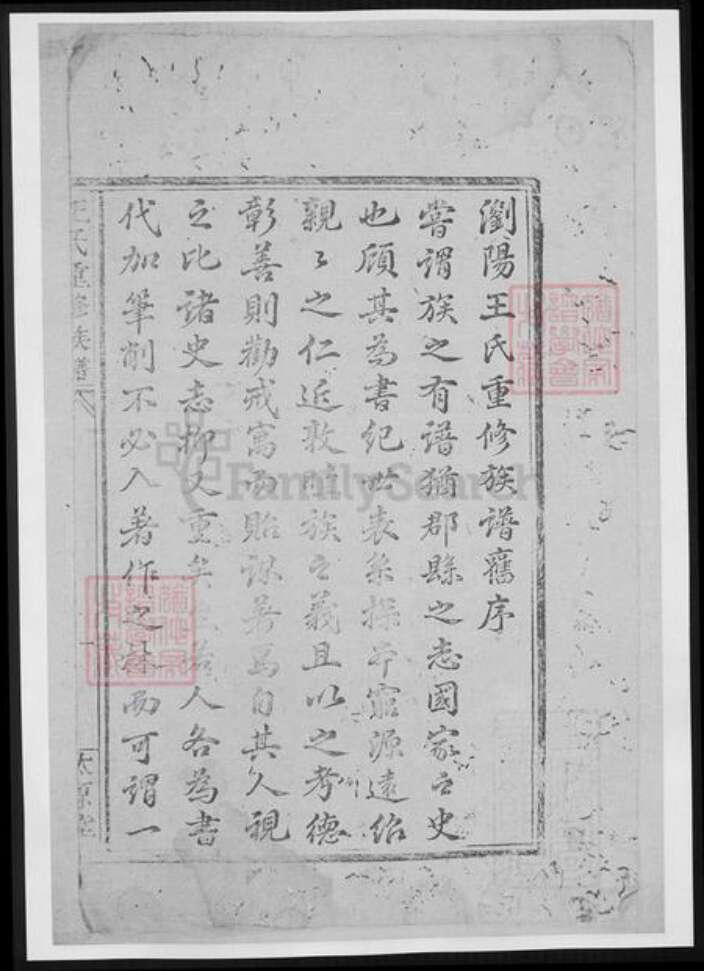 瀏陽王氏重修族譜舊序
嘗謂族之有譜猶郡縣之志國家之史
也顧其為書紀世表系探本窮源遠紹
親々之仁近敦睦族之義且以之考德
彰善則勸戒寓而貽謀善焉自其久視
之比諸史志抑又重矣人各為書
代加筆削不必入著作之林而可謂一
王氏重修族譜
太原堂
FamilySearch